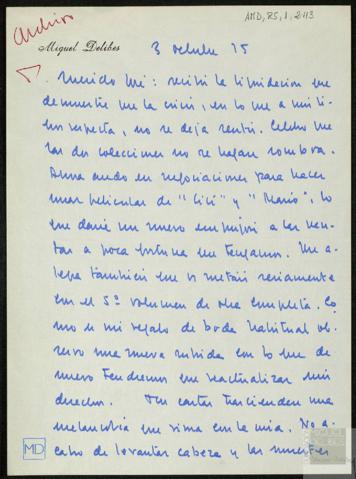 Archivo
AMD, 85, 1, 2113
Miguel Delibes
3 octubre 75
Querido : recibí la liquidación que
demuestra que la crisis, en lo que a mis li-
bros respecta, no se deja sentir. Celebro que
las dos colecciones no se hagan sombra.
Ahora ando en negociaciones para hacer
unas películas de "Cici" y "Mario", lo
que daría un nuevo empujón a las ven-
tas a poca fortuna que tengamos. Me a-
legra también que os metáis seriamente
con el 5º volumen de obra completa. Co-
mo es mi regalo de boda habitual ob-
servo una nueva subida con lo que de
nuevo tendremos que reactualizar mis
derechos. Tus cartas trascienden una
melancolía que rima con la mía. No a-
cabo de levantar cabeza y las muertes
MD